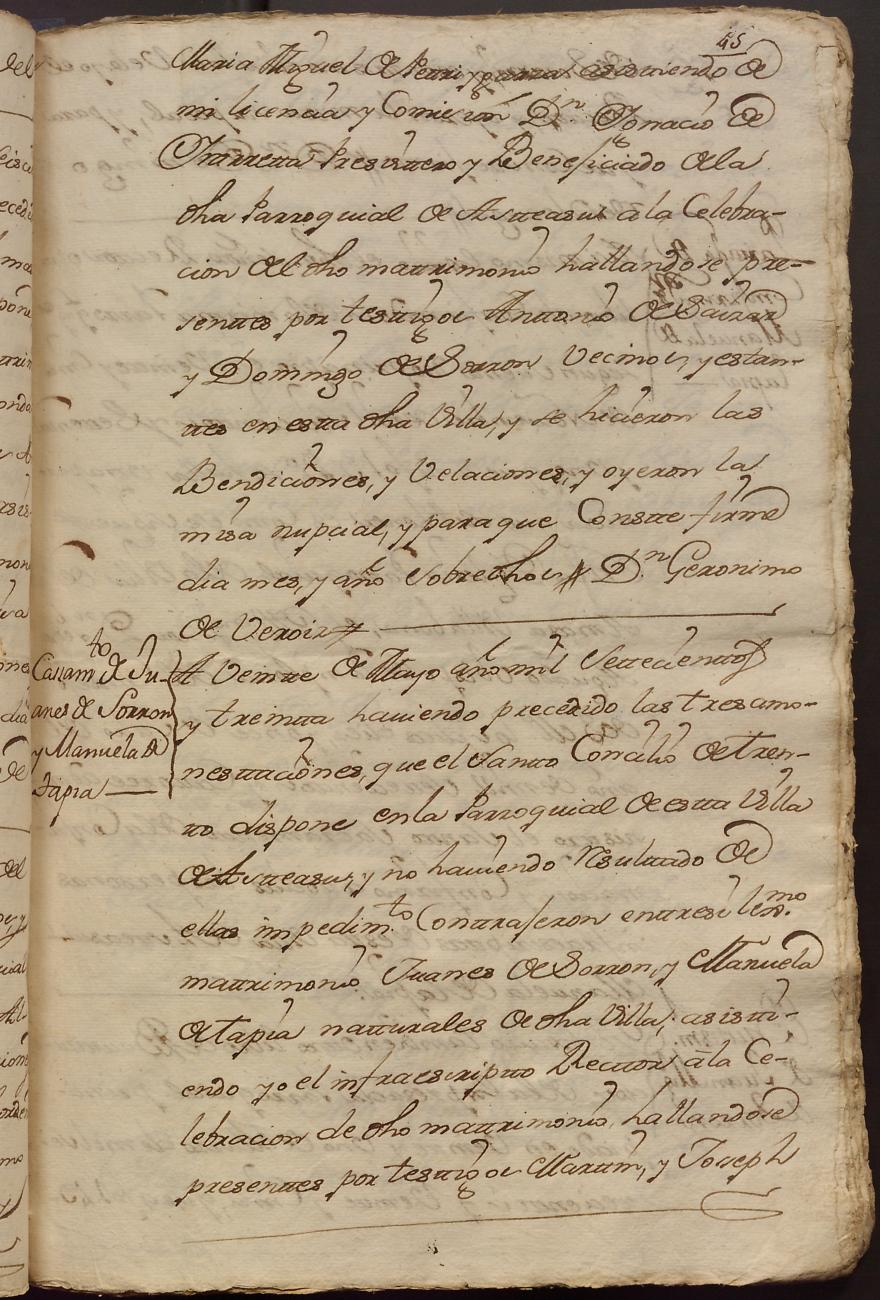 45
Maria Miguel de asistiendo de
mi licencia y Comision Dn. Ignacio de
Iturreta Presvitero y Beneficiado de la
dha Parroquial de Asteasu a la Celebra-
cion del dho matrimonio hallandose pre-
sentes por testigos Antonio de
y Domingo de Sorron Vecinos, y estan-
tes en esta dha Villa, y se hicieron las
Bendiciones, y Velaciones, y oyeron la
misa nupcial, y para que Conste firme
dia mes, y año sobre dhos # Dn. Geronimo
de Veroiz #
Cassamto de Ju-
anes de Sorron
y Manuela de
Tapia
A Veinte de Mayo año mil Settecientos
y treinta haviendo precedido las tres amo-
nestaciones, que el Santo Concilio de Tren-
to dispone en la Parroquial de esta Villa
de Asteasu, y no haviendo Resultado de
ellas impedimto. Contrajeron entresi lexmo.
matrimonio Juanes de Sorron, y Manuela
de tapia naturales de dha Villa, asisti-
endo yo el infraescripto Rector à la Ce-
lebracion de dho matrimonio, hallandose
presentes por testigos Martin, y Joseph